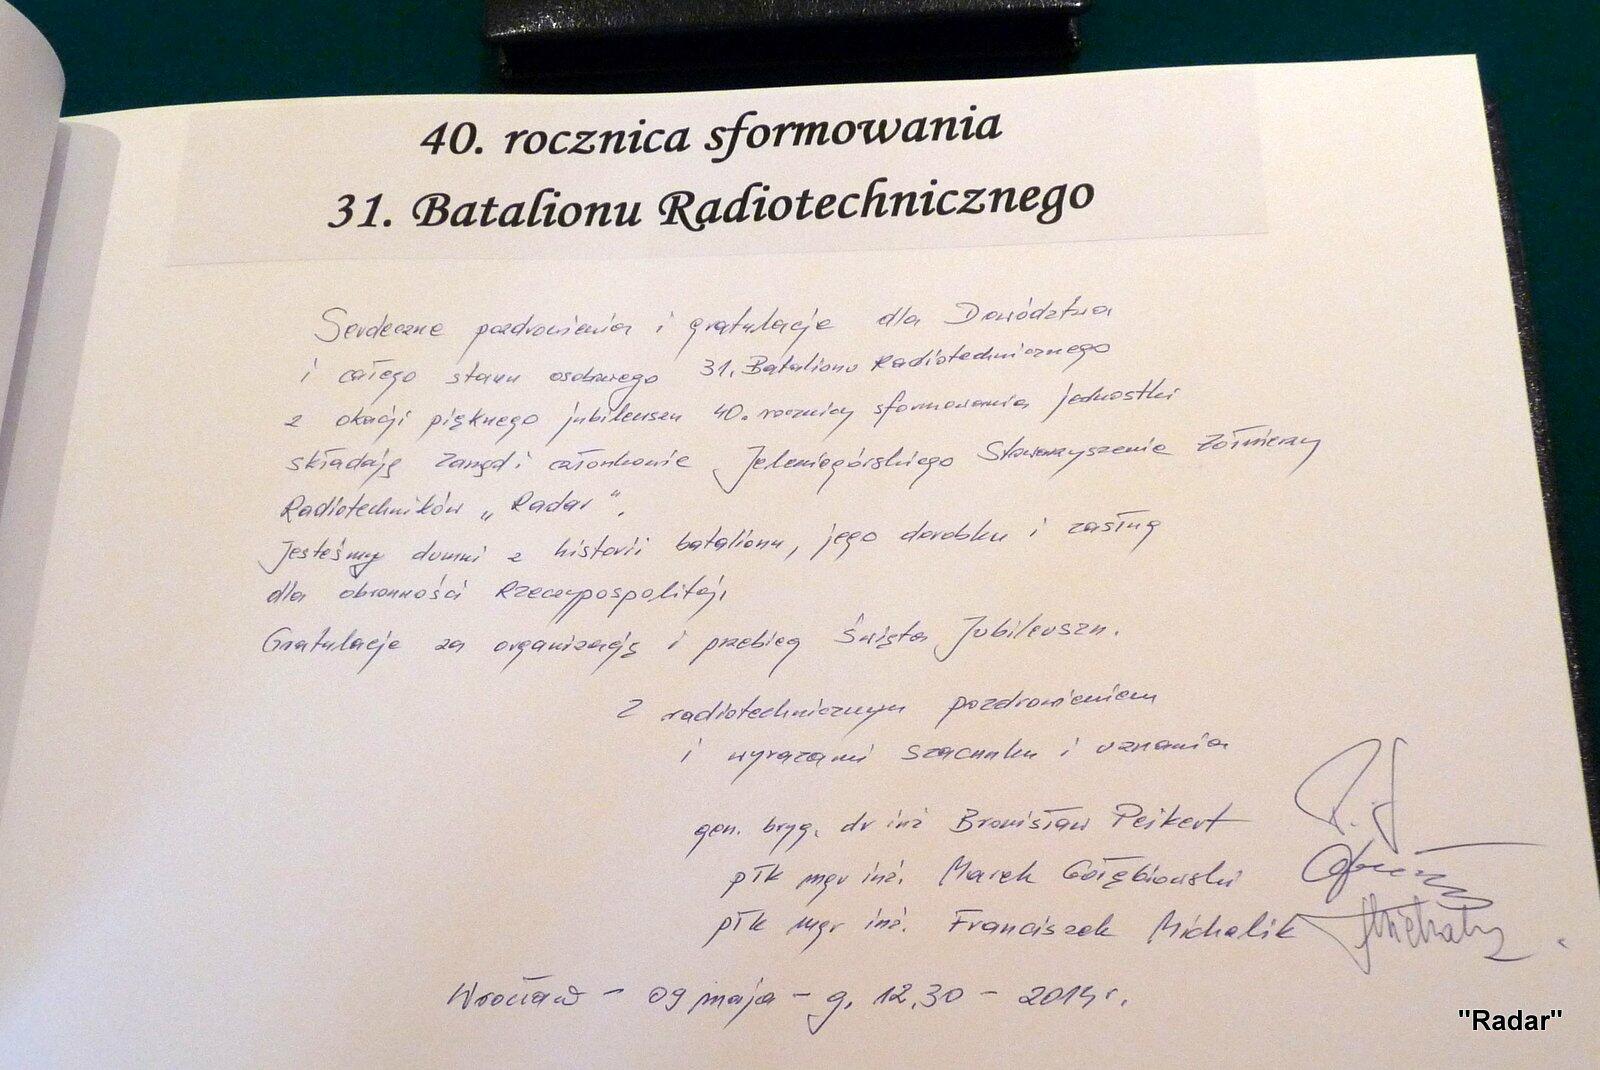 40. rocznica sformowania
31. Batalionu Radiotechnicznego
Serdeczne pozdrowienia i gratulacje dla Dowództwa
i całego stanu osobowego 31. Batalionu Radiotechnicznego
z okazji pięknego jubileuszu 40. rocznicy sformowania jednostki
składają Zarząd i członkowie Jeleniogórskiego Stowarzyszenia Żołnierzy
Radiotechników „Radar”.
Jesteśmy dumni z historii batalionu, jego dorobku i zasług
dla obronności Rzeczypospolitej.
Gratulacje za organizację i przebieg Święta Jubileuszu.
Z radiotechnicznym pozdrowieniem
i wyrazami szacunku i uznania
gen. bryg. dr inż Bronisław Peikert
płk mgr inż. Marek Gołębiowski
płk mgr inż. Franciszek Michalik
Wrocław – 09 maja – g. 12.30 – 2014 r.
"Radar"